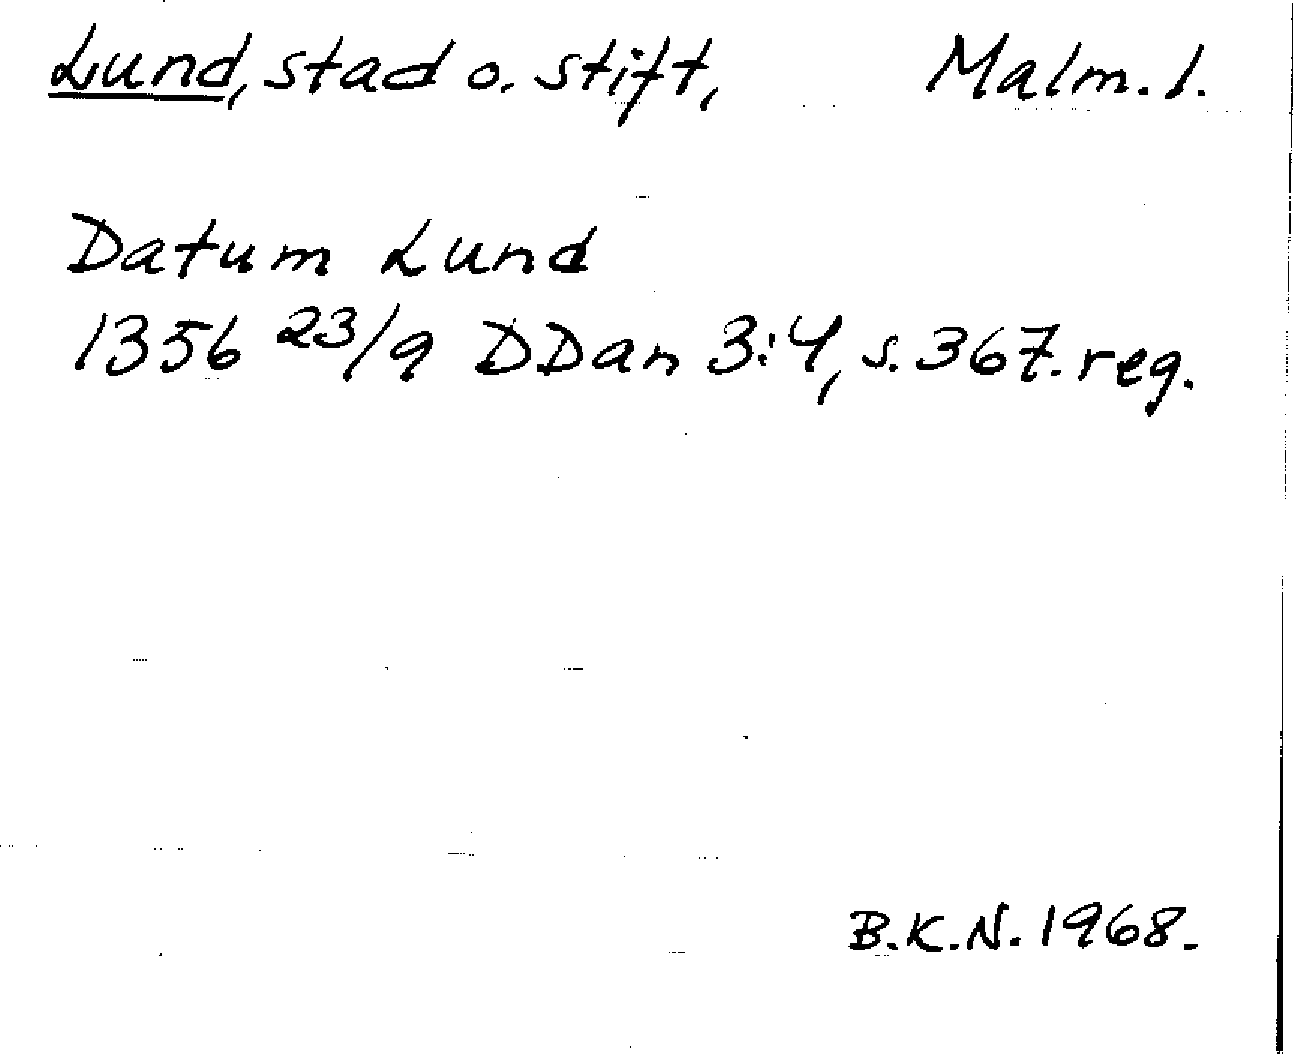 Lund, stad o. stift, Malm. l.
Datum Lund
1356 23/9 DDan 3:4, s. 367. reg.
B.K.N. 1968.